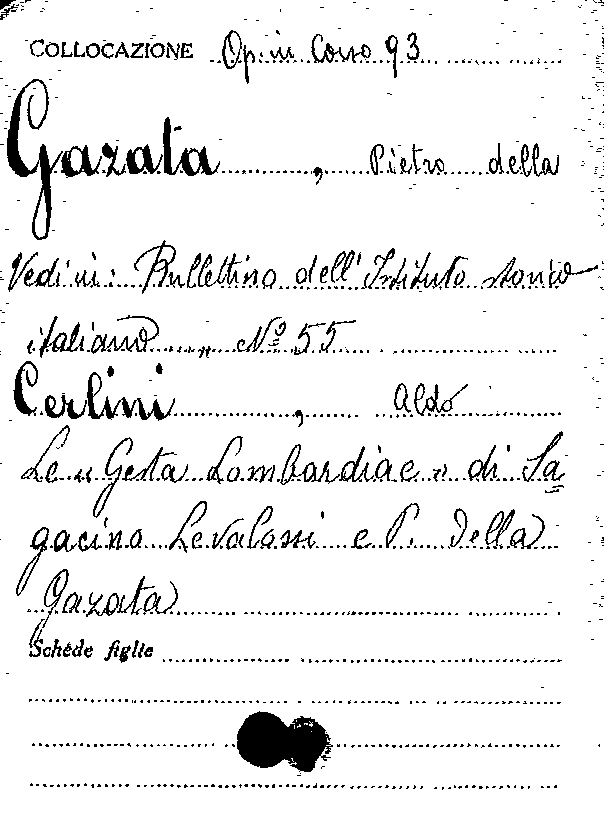 COLLOCAZIONE Op. in Corso 93
Gazata, Pietro della
Vedi in: Bullettino dell'Istituto storico
italiano „ Nº 55
Cerlini, Aldo
Le „ Gesta Lombardiae „ di Sa=
gacino Levalossi e P. Della
Gazata
Schede figlie